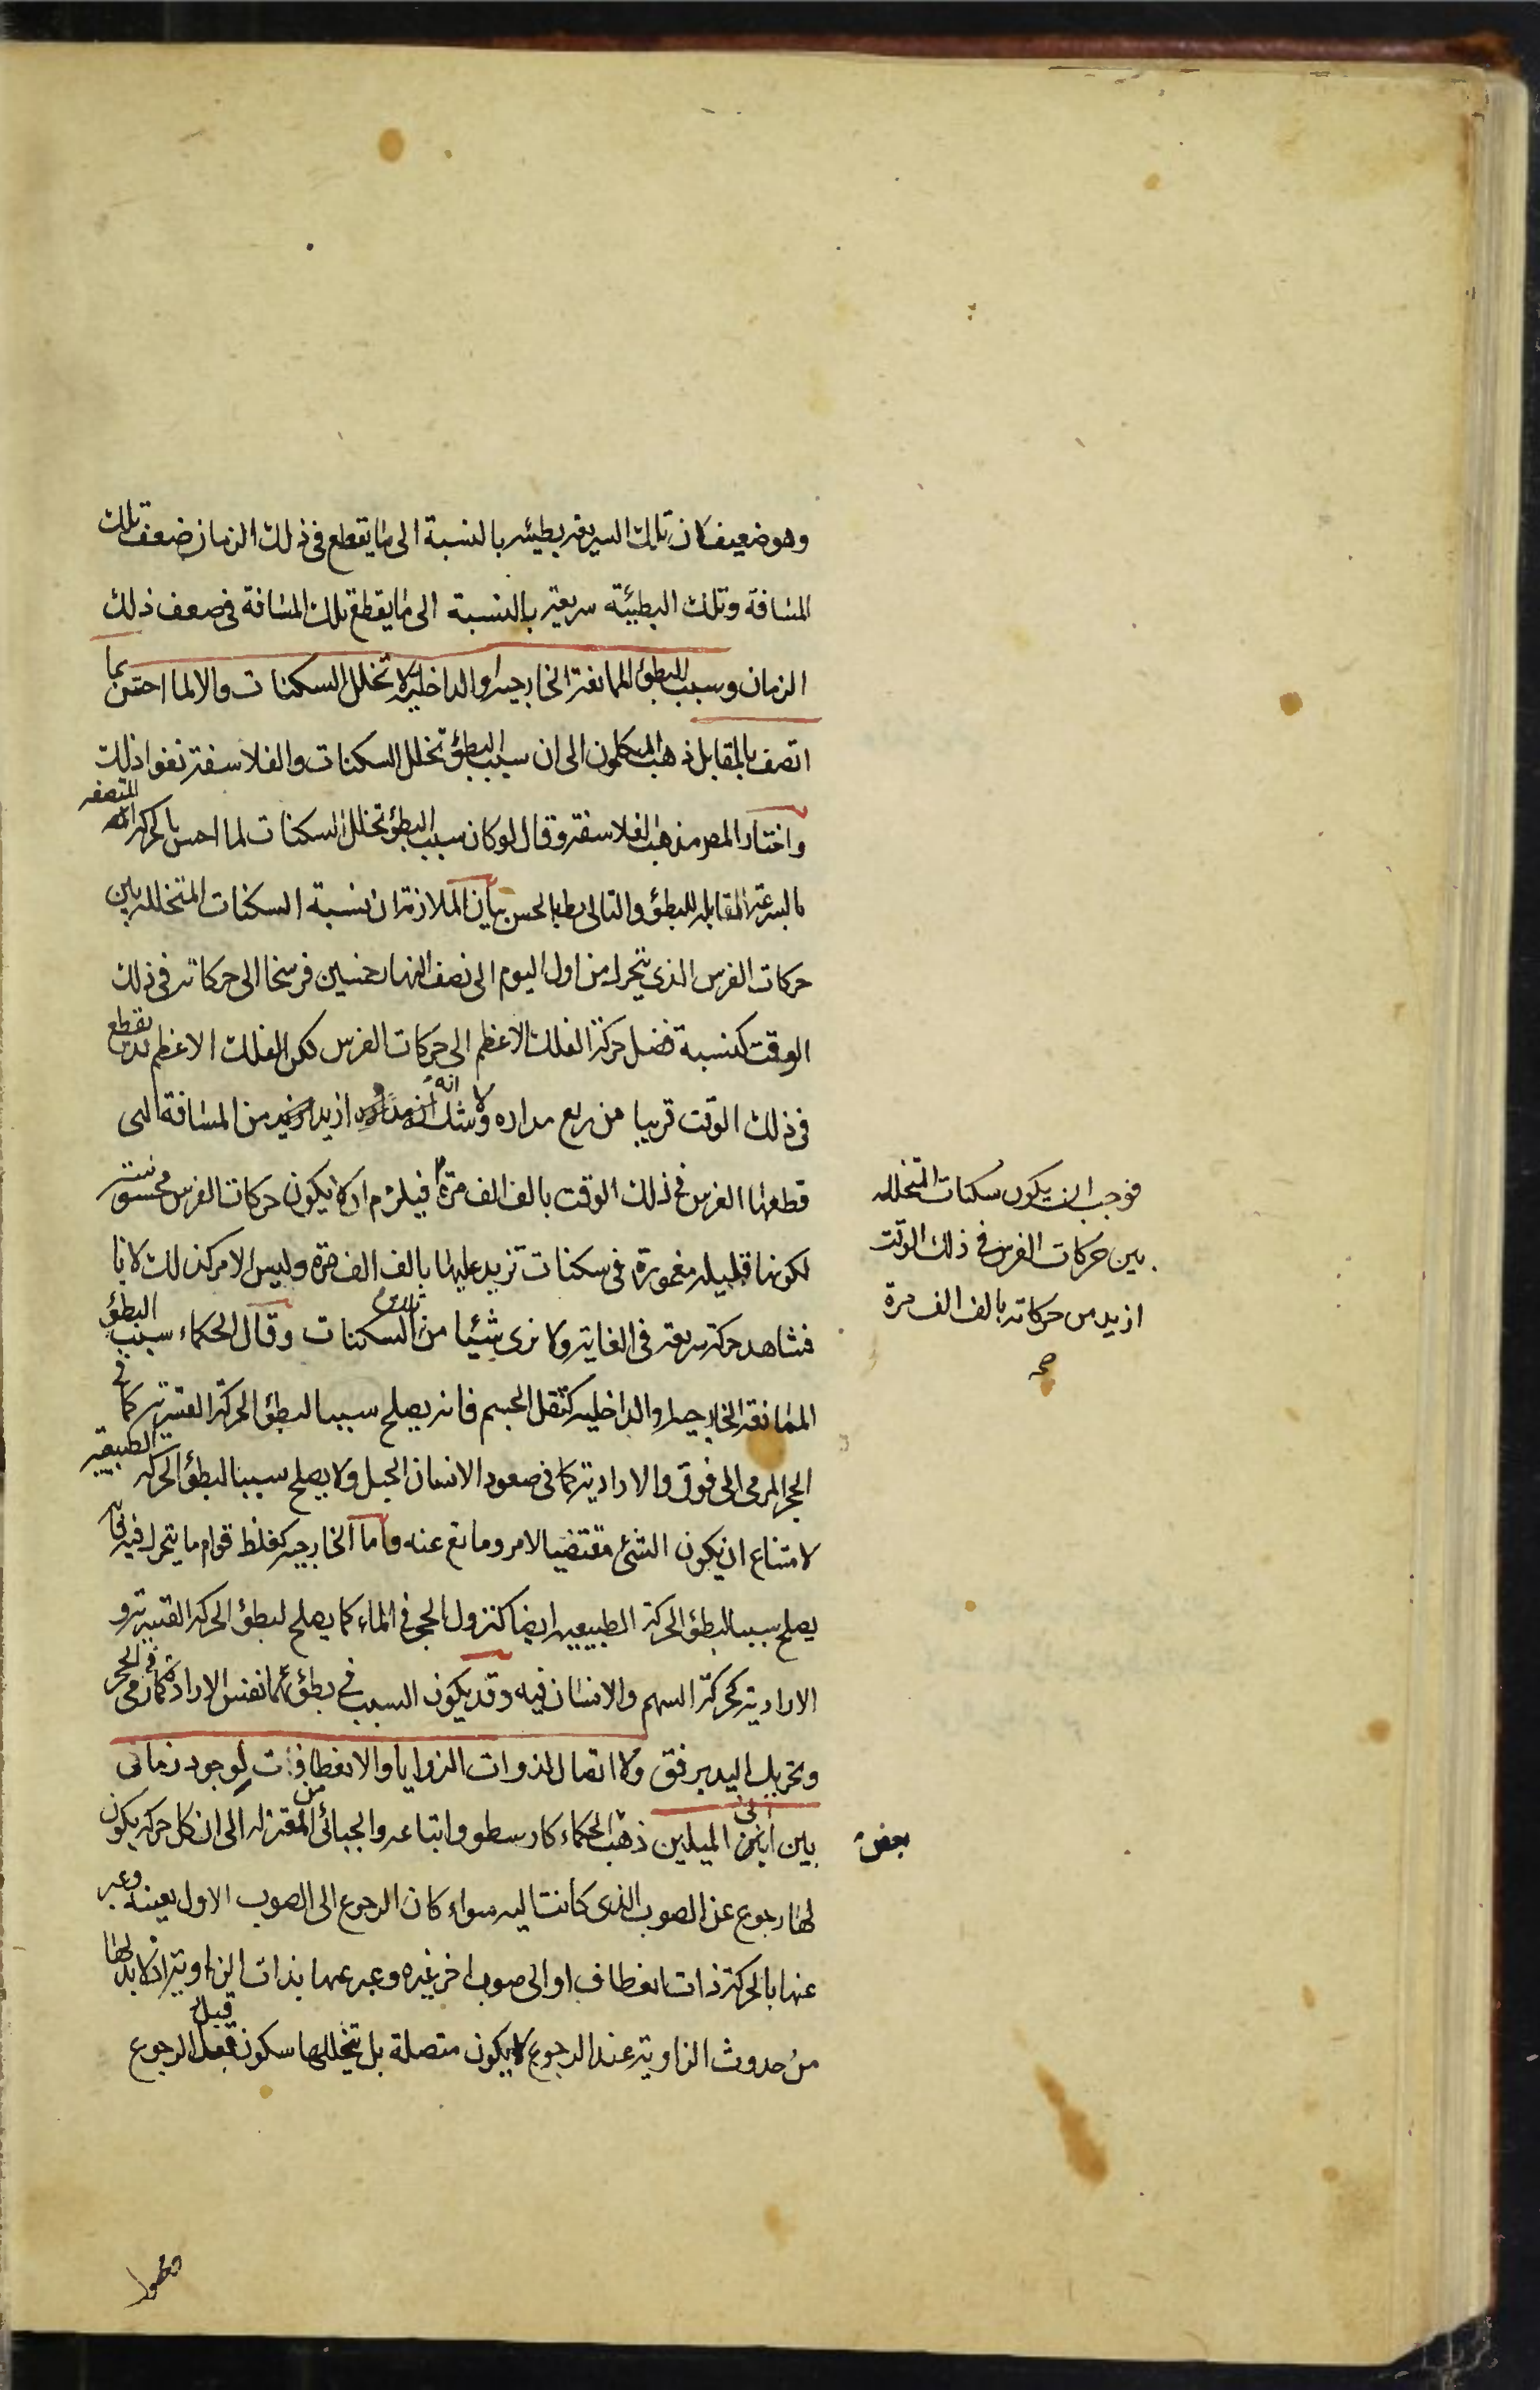 وهو ضعيف كان تلك السريعة بطيئه بالنسبة الى ما يقطع فى ذلك الزمان ضعف تلك
المسافة وتلك البطيئة سريعة بالنسبة الى ما يقطع تلك المسافة فى ضعف ذلك
الزمان وسبب البطؤ الممانعة الخارجية او الداخلية لا تخلل السكنات والا لما احس بما
اتصف بالمقابل ذهب المتكلمون الى ان سبب البطؤ تخلل السكنات والفلاسفة نفوا ذلك
واختار المصر مذهب الفلاسفة وقال لو كان سبب البطؤ تخلل السكنات لما احس بالحركة المتصفه
بالسرعة المقابلة للبطؤ والتالى بط بالحس بيان الملازمة ان نسبة السكنات المتخللة بين
حركات الفرس الذى يتحرك من اول اليوم الى نصف النهار خمسين فرسخا الى حركاته فى ذلك
الوقت كنسبة فضل حركة الفلك الاعظم الى حركات الفرس لكن الفلك الاعظم يقطع
فى ذلك الوقت قريبا من ربع مداره ولا شك انه ازيد من المسافة التى
قطعها الفرس فى ذلك الوقت بالف الف مرة فيلزم ان لا يكون حركات الفرس محسوسة
فوجب ان يكون سكنات المتخلله
بين حركات الفرس فى ذلك الوقت
ازيد من حركاته بالف الف مرة
صح
لكونها قليله مغمورة فى سكنات تزيد عليها بالف الف مرة وليس الامر كذلك لانا
نشاهد حركة سريعة فى الغاية ولا نرى شيئا من السكنات وقال الحكماء سبب البطؤ
الممانعة الخارجية او الداخلية كثقل الجسم فانه يصلح سببا لبطؤ الحركة القسرية كما فى
الحجر المرمى الى فوق والارادية كما فى صعود الانسان الجبل ولا يصلح سببا لبطؤ الحركة الطبيعية
لامتناع ان يكون الشئ مقتضيا لامر ومانع عنه واما الخارجية كغلظ قوام ما يتحرك فيه فانه
يصلح سببا لبطؤ الحركة الطبيعية ايضا كنزول الحجر فى الماء كما يصلح لبطؤ الحركة القسرية و
الارادية كحركة السهم والانسان فيه وقد يكون السبب فى بطؤ نفس الارادة كما فى رمى الحجر
وتحريك اليد برفق ولا اتصال لذوات الزوايا والانعطافات لوجود زمانى
بين آنى الميلين ذهب بعض الحكماء كارسطو واتباعه والجبائى من المعتزله الى ان كل حركة يكون
لها رجوع عن الصوب الذى كانت اليه سواء كان الرجوع الى الصوب الاول بعينه وعبر
عنها بالحركة ذات انعطاف او الى صوب اخر غيره وعبر عنها بذات الزاوية اذ لا بد لها
من حدوث الزاوية عند الرجوع لا يكون متصلة بل يتخللها سكون قبل الرجوع